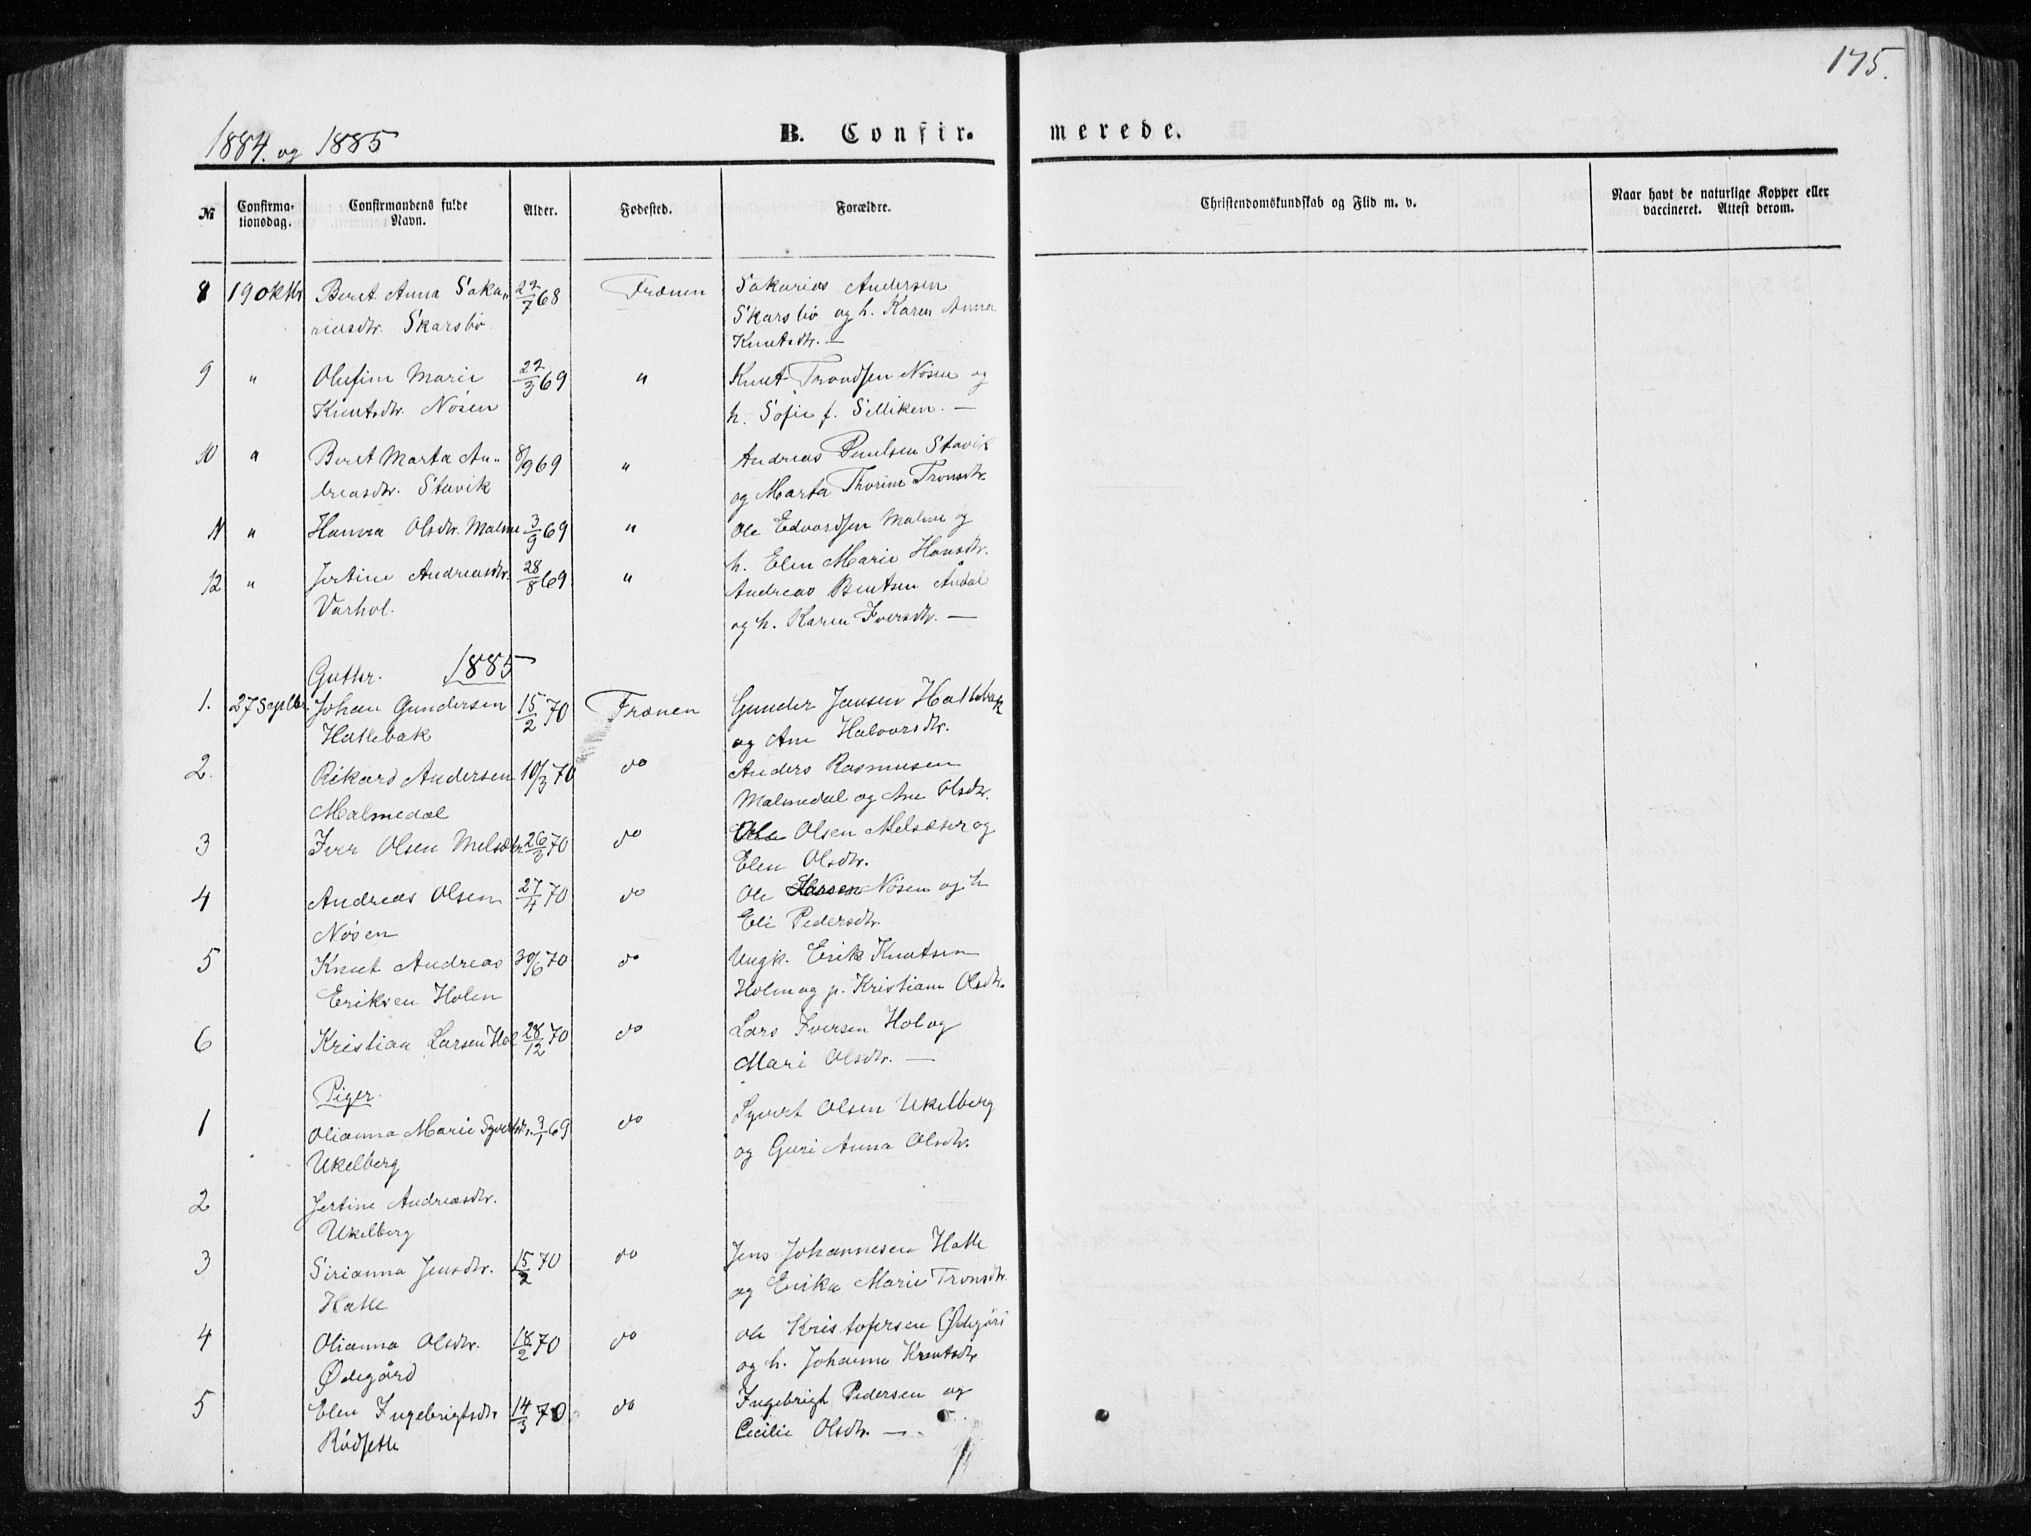 175.
1884. og 1885
B. Confir-
merede.
№
Confirma-
tionsdag.
Confirmandens fulde
Navn.
Alder.
Fødested.
Forældre.
Christendomskundskab og Flid m. v.
Naar havt de naturlige Kopper eller
vaccineret. Attest derom.
8 19 oktbr Beret Anna Saka- 22/7 68 Frænen Sakarias Andersen
riasdtr. Skarsbø Skarsbø og h. Karen Anna
Knutsdtr. —
9 " Olufine Marie 22/3 69 " Knut Trondsen Nøsen og
Knutsdtr. Nøsen h. Sofie f. Silliken. —
10 " Beret Marta An- 8/9 69 " Andreas Paulsen Stavik
dreasdtr. Stavik og Marta Thorine Tronsdtr.
11 " Hanna Olsdtr. Malme 3/9 69 " Ole Edvardsen Malme og
h. Elen Marie Hansdtr.
12 " Jertine Andreasdtr. 28/8 69 " Andreas Bentsen Ådal
Varhol. og h. Karen Iversdtr. —
Gutter. 1885
1. 27 Septbr. Johan Gundersen 15/2 70 Frænen Gunder Jensen Hattebak
Hattebak og Ane Halvorsdtr.
2. Rikard Andersen 10/3 70 do Anders Rasmusen
Malmedal Malmedal og Ane Olsdtr.
3 Iver Olsen Melsæter 26/3 70 do Ole Olsen Melsæter og
Elen Olsdtr.
4 Andreas Olsen 27/4 70 do Ole Larsen Nøsen og h
Nøsen Eli Pedersdtr.
5 Knut Andreas 30/6 70 do Ungk. Erik Knutsen
Eriksen Holen Holen og p. Kristiane Olsdtr.
6 Kristian Larsen Hol 28/12 70 do Lars Iversen Hol og
Mari Olsdtr. —
Piger.
1 Olianna Marie Syvertsdtr. 3/1 69 do Syvert Olsen Ukelberg
Ukelberg og Guri Anna Olsdtr.
2 Jertine Andreasdtr.
Ukelberg
3 Sirianna Jensdtr. 15/2 70 do Jens Johannesen Hatle
Hatle og Erika Marie Tronsdtr.
4 Olianna Olsdtr. 18/2 70 do Ole Kristofersen Ødegård
Ødegård og h. Johanna Knutsdtr
5 Elen Ingebrigtsdtr 14/3 70 do Ingebrigt Pedersen og
Rødsetle Cecilie Olsdtr. —